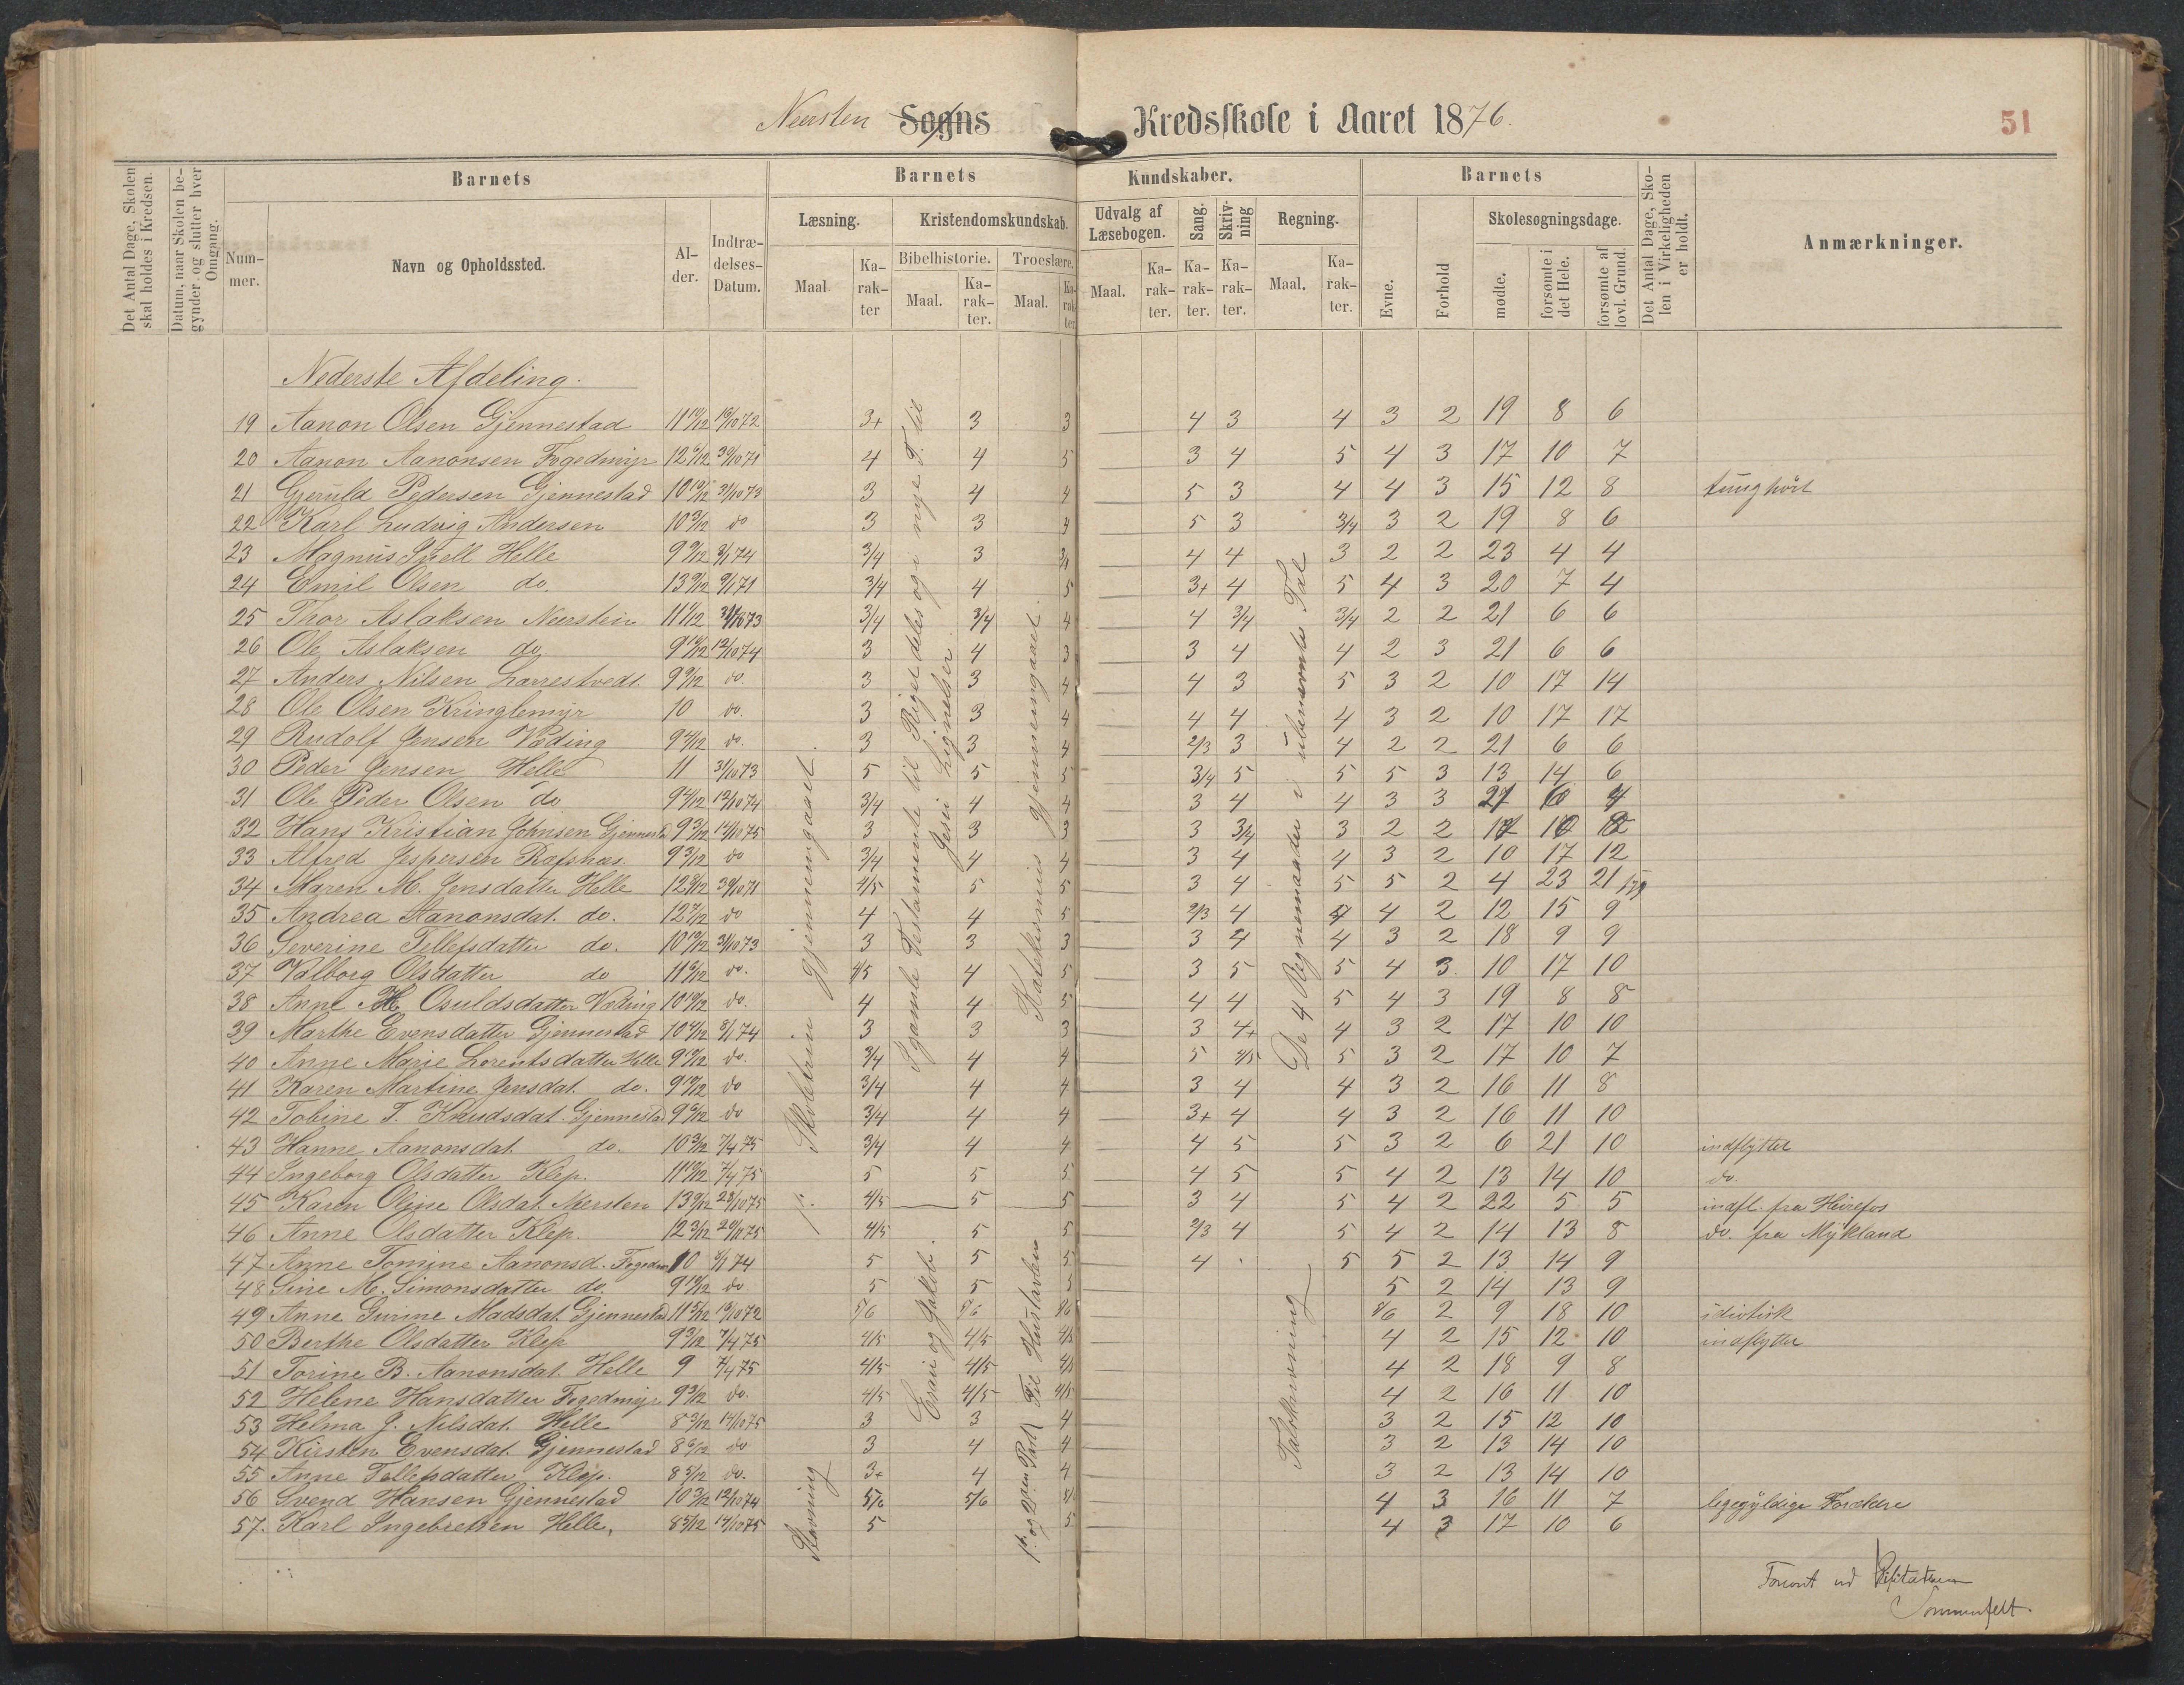 Neersten Sogns Kredsskole i Aaret 1876.
51
Det Antal Dage, Skolen skal holdes i Kredsen.
Datum, naar Skolen begynder og slutter hver Omgang.
Barnets
Nummer.
Navn og Opholdssted.
Alder.
Indtrædelses-Datum.
Barnets Kundskaber.
Læsning.
Maal
Karakter
Kristendomskundskab.
Bibelhistorie.
Maal.
Karakter.
Troeslære.
Maal.
Karakter
Udvalg af Læsebogen.
Maal.
Karakter.
Sang.
Karakter.
Skrivning
Karakter.
Regning.
Maal.
Karakter.
Barnets
Evne.
Forhold
Skolesøgningsdage.
mødte.
forsømte i det Hele.
forsømte af lovl. Grund.
Det Antal Dage, Skolen i Virkeligheden er holdt.
Anmærkninger.
Nederste Afdeling.
19 Aanon Olsen Gjennestad 11 10/12 3+ 3 3 4 3 4 3 2 19 8 6
20 Aanon Aanonsen Fogedmyr 12 6/12 4 4 5 3 4 5 4 3 17 10 7
21 Gjeruld Pedersen Gjennestad 10 10/12 31/10 73 3 4 4 5 3 4 4 3 15 12 8 tunghørt
22 Karl Ludvig Andersen 10 3/12 do 3 3 4 5 3 3/4 3 2 19 8 6
23 Magnus Snell Helle 9 9/12 8/1 74 3/4 3 3/4 4 4 3 2 2 23 4 4
24 Emil Olsen do. 13 9/12 9/1 71 3/4 4 5 3+ 4 5 4 3 20 7 4
25 Thor Aslaksen Neerstein 11 1/12 31/10 73 3/4 3/4 4 4 3/4 3/4 2 2 21 6 6
26 Ole Aslaksen do. 9 10/12 12/10 74 3 4 3 3 4 4 2 3 21 6 6
27 Anders Nilsen Larrestvedt 9 9/12 do. 3 3 4 4 3 5 3 2 10 17 14
28 Ole Olsen Kringlemyr 10 do. 3 3 4 4 4 4 3 2 10 17 17
29 Rudolf Jensen Væding 9 4/12 do. 3 3 4 2/3 3 4 2 2 21 6 6
30 Peder Jensen Helle 11 31/10 73 5 5 5 3/4 5 5 5 3 13 14 6
31 Ole Peder Olsen do 9 4/12 12/10 74 3/4 4 4 3 4 4 3 3 21 6 4
32 Hans Kristian Johnsen Gjennestd 9 3/12 14/10 75 3 3 3 3 3/4 3 2 2 17 10
33 Alfred Jespersen Rafsnæs 9 3/12 do 3/4 4 4 3 4 4 3 2 10 17 12
34 Maren M. Jensdatter Helle 12 8/12 30/10 71 4/5 5 5 3 4 5 5 2 4 23 21
35 Andrea Aanonsdat. do. 12 7/12 do 4 4 5 2/3 4 4 2 12 15 9
36 Severine Tellefsdatter do. 10 10/12 31/10 73 3 3 3 3 4 4 3 2 18 9 9
37 Valborg Olsdatter do 11 6/12 do. 4/5 4 5 3 5 5 4 3 10 17 10
38 Anne H. Osuldsdatter Væding 10 10/12 do. 4 4 5 4 4 5 4 3 19 8 8
39 Marthe Evensdatter Gjennestad 10 4/12 8/1 74 3 3 3 3 4+ 4 3 2 17 10 10
40 Anne Marie Lorentsdatter Helle do. 3/4 4 4 5 4/5 5 3 2 17 10 7
41 Karen Martine Jensdat. do. 9 10/12 do 3/4 4 4 3 4 4 3 2 16 11 8
42 Tobine T. Knudsdat. Gjennestad 9 6/12 do 3/4 4 4 3+ 4 4 3 2 16 11 10
43 Hanne Aanonsdat. do. 10 3/12 7/4 75 3/4 4 4 4 5 5 3 2 6 21 10 indflyttet
44 Ingeborg Olsdatter Klep. 11 10/12 7/4 75 5 5 5 4 5 5 4 2 13 14 10 do.
45 Karen Oline Olsdat. Mersten 13 9/12 28/10 75 4/5 5 5 3 4 5 4 2 22 5 5 indfl. fra Heirefos
46 Anne Olsdatter Klep. 12 3/12 4/5 5 5 2/3 4 5 4 2 14 13 8 do. fra Mykland
47 Anne Tomine Aanonsd. Fogedm 10 8/1 74 5 5 5 4 5 5 2 13 14 9
48 Sine M. Simonsdatter do. 9 11/12 do. 5 5 5 5 2 14 13 9
49 Anne Gurine Madsdat. Gjennestad 11 5/12 5/6 5/6 5/6 5/6 2 9 18 10 idiotisk
50 Berthe Olsdatter Klep 9 3/12 7/4 75 4/5 4/5 4/5 4 2 15 12 10 indflyttet
51 Torine B. Aanonsdat. Helle 9 7/4 75 4/5 4/5 4/5 4 2 18 9 8
52 Helene Hansdatter Fogedmyr 9 3/12 do. 4/5 4/5 4/5 4 2 16 11 10
53 Helma J. Nilsdat. Helle 8 9/12 14/10 75 3 3 4 3 2 15 12 10
54 Kirsten Evensdat. Gjennestad 8 6/12 do 3 4 4 3 2 13 14 10
55 Anne Tellefsdatter Klep. 8 5/12 do. 3+ 4 4 3 2 13 14 10
56 Svend Hansen Gjennestad 10 3/12 12/10 74 5/6 5/6 5/6 4 3 16 11 7 ligegyldige Forældre
57. Karl Ingebretsen Helle, 8 5/12 14/10 75 5 5 4 3 17 10 6
Skoletrin gjennemgaaet.
Stavning
I gamle Testamente til Riget deles og i nye T. til
Jesu Lignelser.
Esau og Jakob.
Katekismus gjennemgaaet.
1ste og 2den Part
Til Hustavlen
De 4 Regnemaader i ubenævnte Tal
Talskrivning
Forevist ved Visitatsen
Sommerfelt.